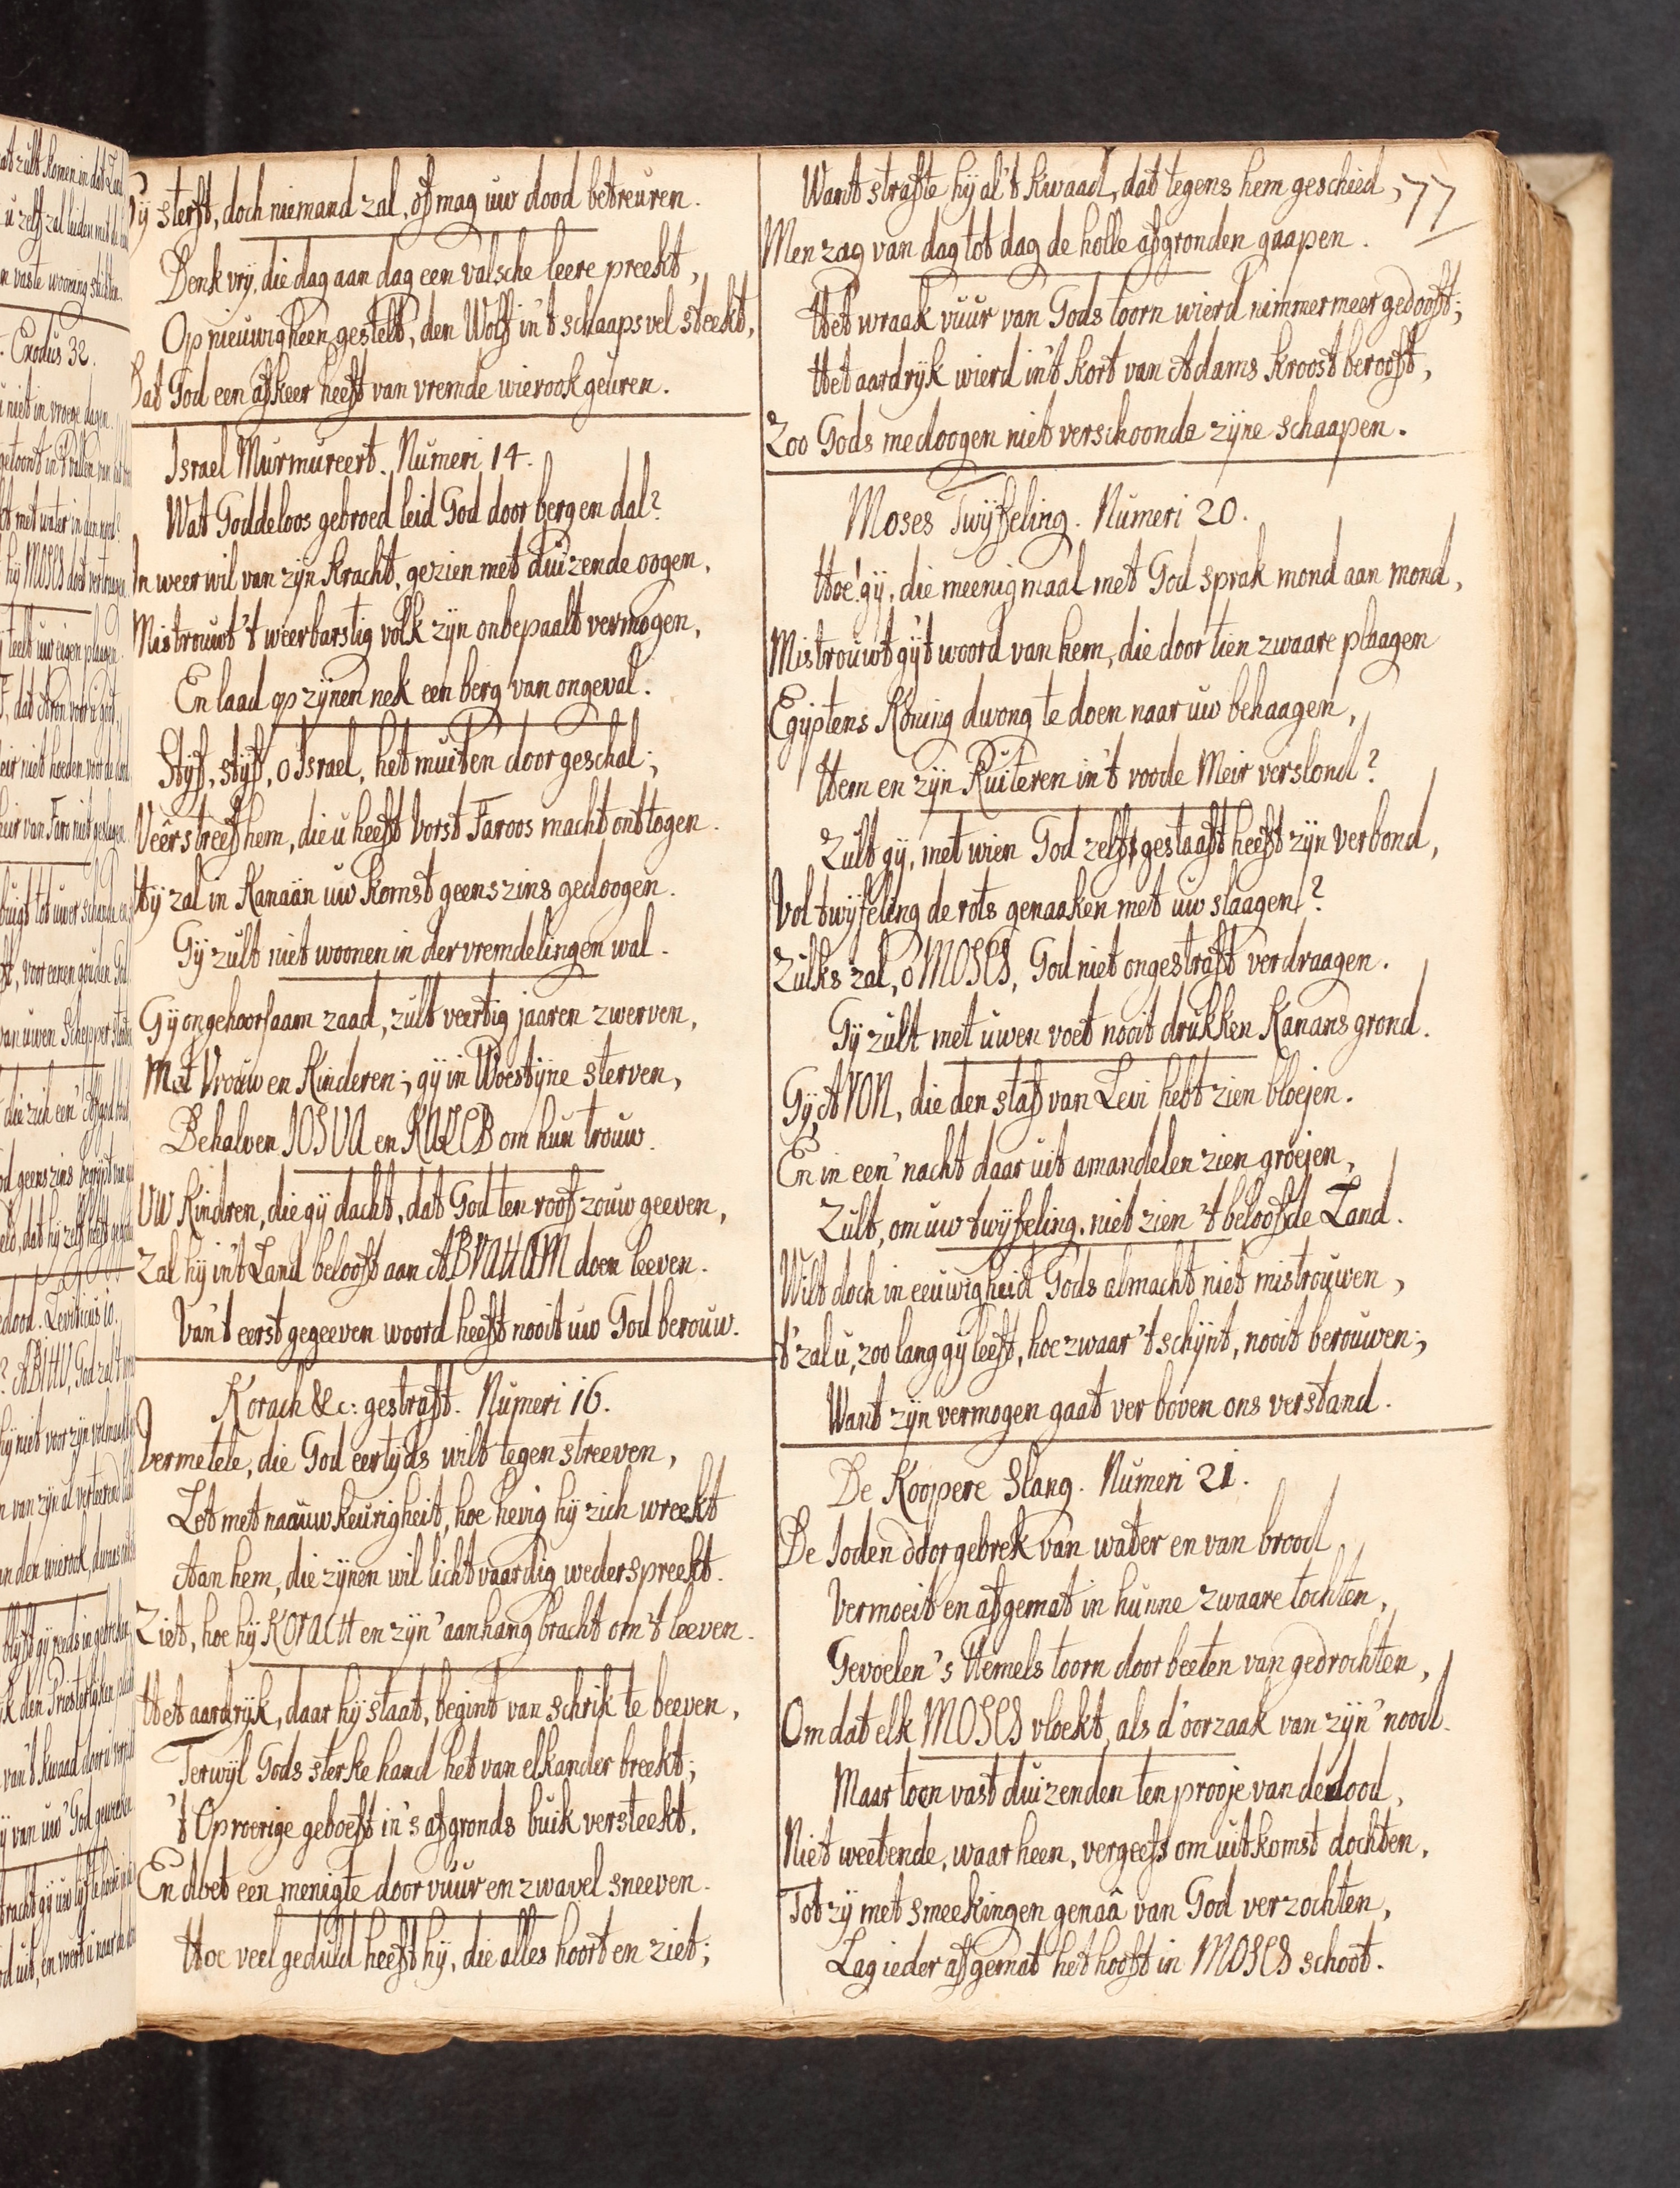 Gy sterft, doch niemand zal, of mag uw dood betreuren.
Denk vry, die dag aan dag een valsche leere preekt,
Op nieuwigheen gestelt, den Wolf in't schaapsvel steekt,
Dat God een afkeer heeft van vremde wierookgeuren.
Israel Murmureert. Numeri 14.
Wat Goddeloos gebroed leid God door berg en dal?
In weerwil van zyn kracht, gezien met duizende oogen,
Mistrouwt 't weerbarstig volk zyn onbepaalt vermogen,
En laad op zynen nek een berg van ongeval.
Styf, styf, o Israel, het muiten door geschal;
Weerstreef hem, die u heeft Vorst Faroos macht onttogen.
Hy zal in Kanaän uw komst geenszins gedoogen.
Gy zult niet woonen in der vremdelingen wal.
Gy ongehoorsaam zaad, zult veertig jaaren zwerven,
Met Vrouw en Kinderen; gy in Woestyne sterven,
Behalven JOSUA en KALEB om hun trouw.
Uw Kindren, die gy dacht, dat God ten roof zouw geeven,
Zal hy in't Land belooft aan ABRAHAM doen leeven.
Van't eerst gegeeven woord heeft nooit uw God berouw.
Korach &c: gestraft. Numeri 16.
Vermetele, die God eertyds wilt tegenstreeven,
Let met naauwkeurigheit, hoe hevig hy zich wreekt
Aan hem, die zynen wil lichtvaardig wederspreekt.
Ziet, hoe hy KORACH en zyn' aanhang bracht om 't leeven.
Het aardryk, daar hy staat, begint van schrik te beeven,
Terwyl Gods sterke hand het van elkander breekt;
't Oproerige geboeft in 's afgronds buik versteekt,
En doet een menigte door vuur en zwavel sneeven.
Hoe veel geduld heeft hy, die alles hoort en ziet;
77
Want strafte hy al 't kwaad, dat tegens hem geschied,
Men zag van dag tot dag de holle afgronden gaapen.
Het wraakvuur van Gods toorn wierd nimmermeer gedooft;
Het aardryk wierd in't kort van Adams kroost berooft,
Zoo Gods medoogen niet verschoonde zyne schaapen.
Moses Twyffeling. Numeri 20.
Hoe! gy, die meenigmaal met God sprak mond aan mond,
Mistrouwt gy't woord van hem, die door tien zwaare plaagen
Egyptens Koning dwong te doen naar uw behaagen,
Hem en zyn Ruiteren in't roode Meir verslond?
Zult gy, met wien God zelfs gestaaft heeft zyn verbond,
Vol twyfeling de rots genaaken met uw slaagen?
Zulks zal, ô MOSES, God niet ongestraft verdraagen.
Gy zult met uwen voet nooit drukken Kanans grond.
Gy, ARON, die den staf van Levi hebt zien bloejen.
En in een' nacht daar uit amandelen zien groejen,
Zult, om uw twyfeling, niet zien 't beloofde Land.
Wilt doch in eeuwigheid Gods almacht niet mistrouwen,
't zal u, zoo lang gy leeft, hoe zwaar 't schynt, nooit berouwen;
Want zyn vermogen gaat ver boven ons verstand.
De Koopere Slang. Numeri 21.
De Joden door gebrek van water en van brood
Vermoeit en afgemat in hunne zwaare tochten,
Gevoelen 's Hemels toorn door beeten van gedrochten,
Om dat elk MOSES vloekt, als d'oorzaak van zyn' nood.
Maar toen vast duizenden ten prooje van de dood,
Niet weetende, waar heen, vergeefs om uitkomst dochten,
Tot zy met smeekingen genaâ van God verzochten,
Lag ieder afgemat het hooft in MOSES schoot.